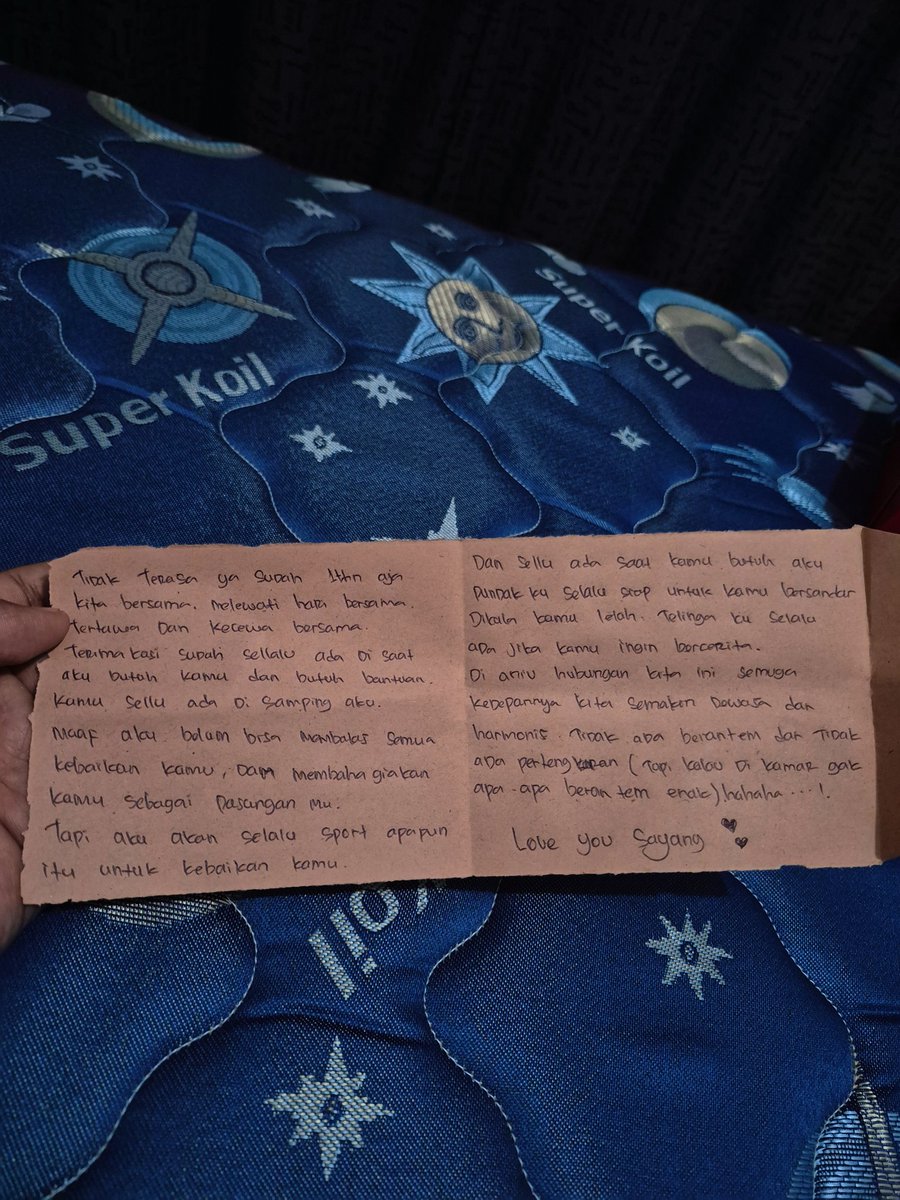 Super Koil
Super Koil
Tidak Terasa ya sudah 1thn aja
kita bersama. Melewati hari bersama.
Tertawa Dan Kecewa bersama.
Terima kasi sudah sellalu ada Di saat
aku butuh kamu dan butuh bantuan.
Kamu sellu ada Di samping aku.
Maaf aku belum bisa Membalas semua
kebaikan kamu, Dan Membahagiakan
kamu sebagai pasangan mu.
Tapi aku akan selalu sport apapun
itu untuk kebaikan kamu.
Dan sellu ada saat kamu butuh aku
pundak ku selalu siap untuk kamu bersandar
Dikala kamu lelah. Telinga ku selalu
ada jika kamu ingin bercerita.
Di aniv hubungan kita ini semuga
kedepannya kita semakin Dewasa dan
harmonis. Tidak ada berantem dan Tidak
ada pertengkaran (Tapi kalau Di kamar gak
apa-apa berantem enak) hahaha....!
Love you Sayang
Koil